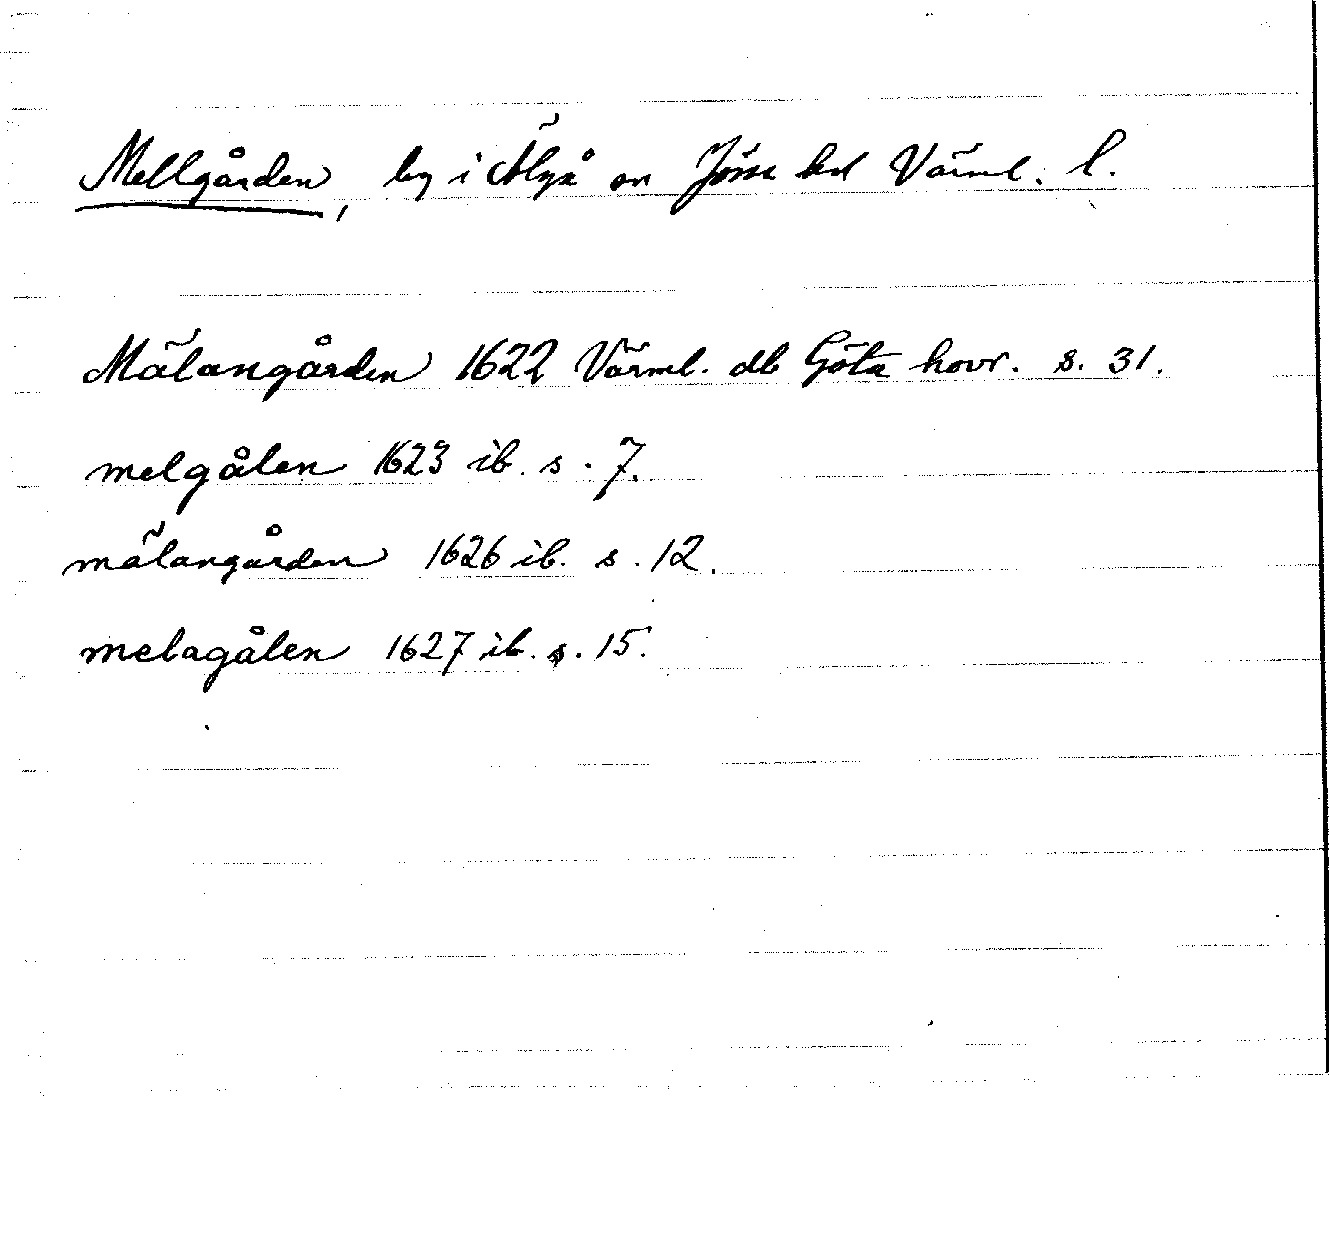 Mellgården, by i Älgå sn Jösse hd Värml. l.
Mälangården 1622 Värml. db Göta hovr. s. 31.
melgålen 1623 ib. s. 7.
mälangården 1626 ib. s. 12.
melagålen 1627 ib. s. 15.